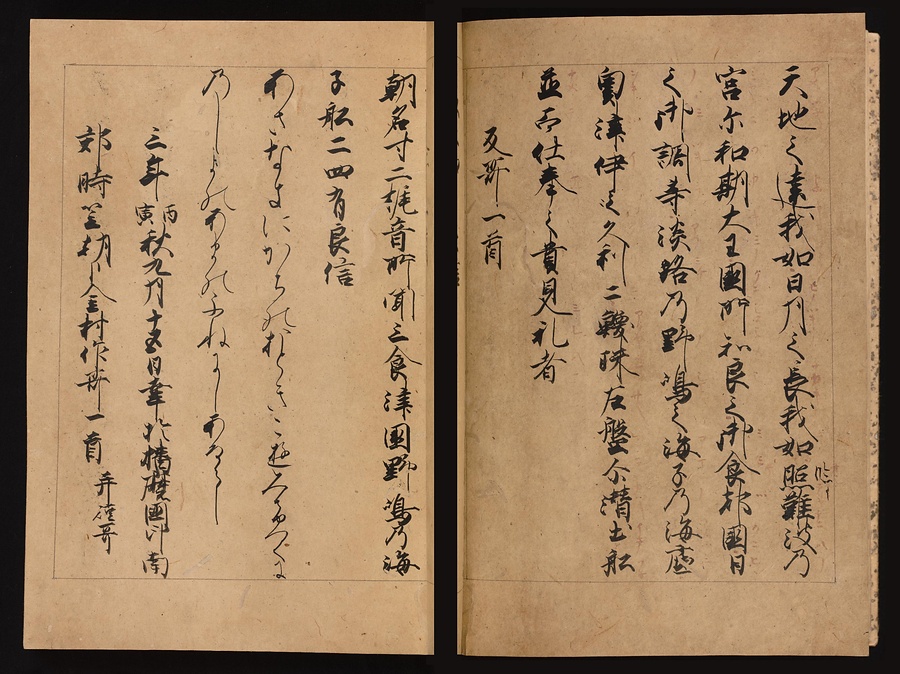 天地之遠我如日月之長我如臨照難波乃
宮尓和期大王國所知良之御食都國日
之御調等淡路乃野嶋之海子乃海底
奥津伊之久利二鰒珠左盤尓潜出船
並而仕奉之貴見礼者
反歌一首
朝名寸二梶音所聞三食津國野嶋乃海
子船二四有良信
あさなきにかちのおときこゆみけつくに
のしまのあまのふねにしあるらし
三年丙寅秋九月十五日幸於播磨國印南
郡時笠朝臣金村作歌一首 并短哥